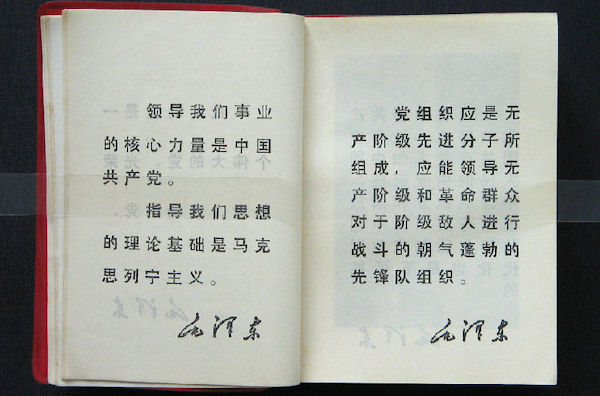 领导我们事业
的核心力量是中国
共产党。
指导我们思想
的理论基础是马克
思列宁主义。
毛泽东
党组织应是无
产阶级先进分子所
组成，应能领导无
产阶级和革命群众
对于阶级敌人进行
战斗的朝气蓬勃的
先锋队组织。
毛泽东